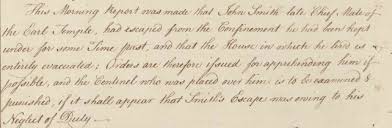 This Morning Report was made that John Smith late Chief Mate of
the Earl Temple, had escaped from the Confinement he had been kept
under for some Time past, and that the House in which he lives is
entirely evacuated; Orders are therefore issued for apprehending him if
possible, and the Centinel who was placed over him is to be examined &
punished, if it shall appear that Smith's Escape was owing to his
Neglect of Duty.